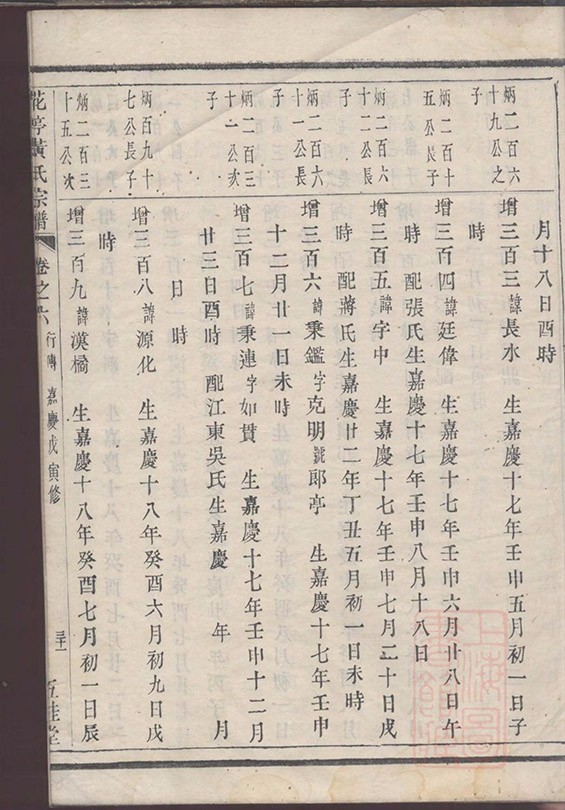 月十八日酉時
炳二百六十九公之子
增三百三諱長水 生嘉慶十七年壬申五月初一日子
時
炳二百十五公長子
增三百四諱廷偉 生嘉慶十七年壬申六月廿八日午
時 配張氏生嘉慶十七年壬申八月十八日
炳二百六十二公長子
增三百五諱字中 生嘉慶十七年壬申七月二十日戌
時 配蔣氏生嘉慶廿二年丁丑五月初一日未時
炳二百六十一公長子
增三百六諱秉鑑字克明號郎亭 生嘉慶十七年壬申
十二月廿一日未時
炳二百三十一公次子
增三百七諱秉連字如貫 生嘉慶十七年壬申十二月
廿三日酉時 配江東吳氏生嘉慶 年 月
日 時
炳百九十七公長子
增三百八諱源化 生嘉慶十八年癸酉六月初九日戌
時
炳二百三十五公次
增三百九諱漢橋 生嘉慶十八年癸酉七月初一日辰
花亭黃氏宗譜 卷之六 行傳 嘉慶戊寅修 五桂堂